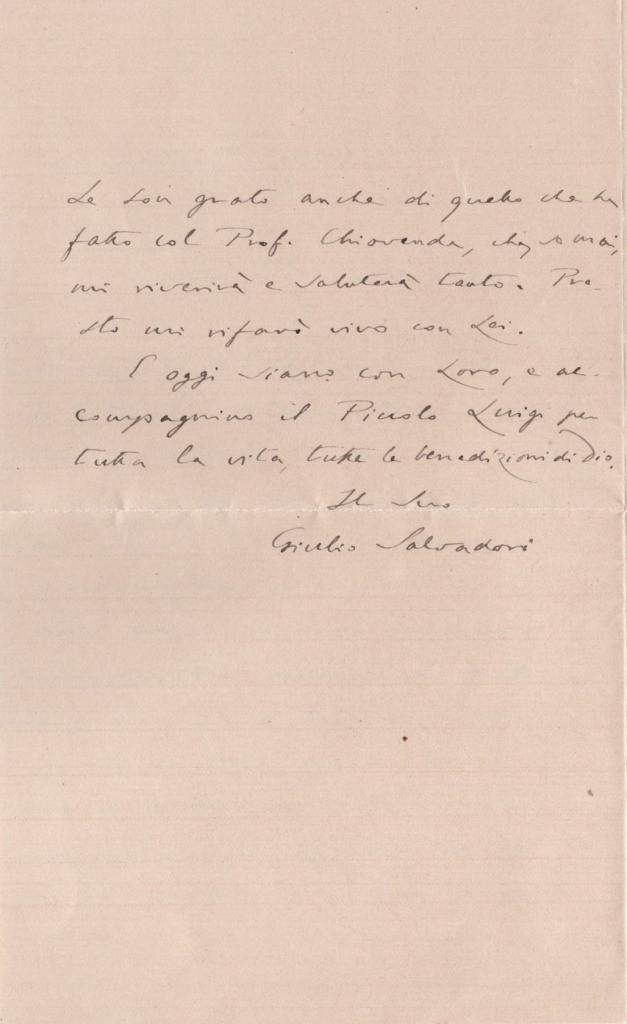 Le son grato anche di quello che ha
fatto col Prof. Chiovenda, che,
mi riverirà e saluterà tanto. Pre-
sto mi rifarò vivo con Lei.
E oggi siano con Loro, e ac-
compagnino il Piccolo Luigi per
tutta la vita, tutte le benedizioni di Dio.
Il Suo
Giulio Salvadori